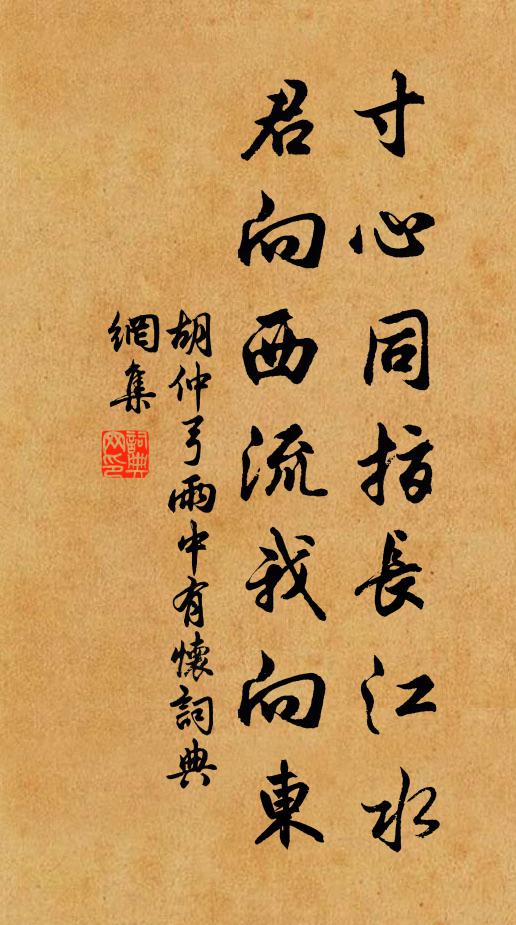 寸心同指長江水
君向西流我向東
胡仲弓雨中有懷詞典
網集
詞典网印